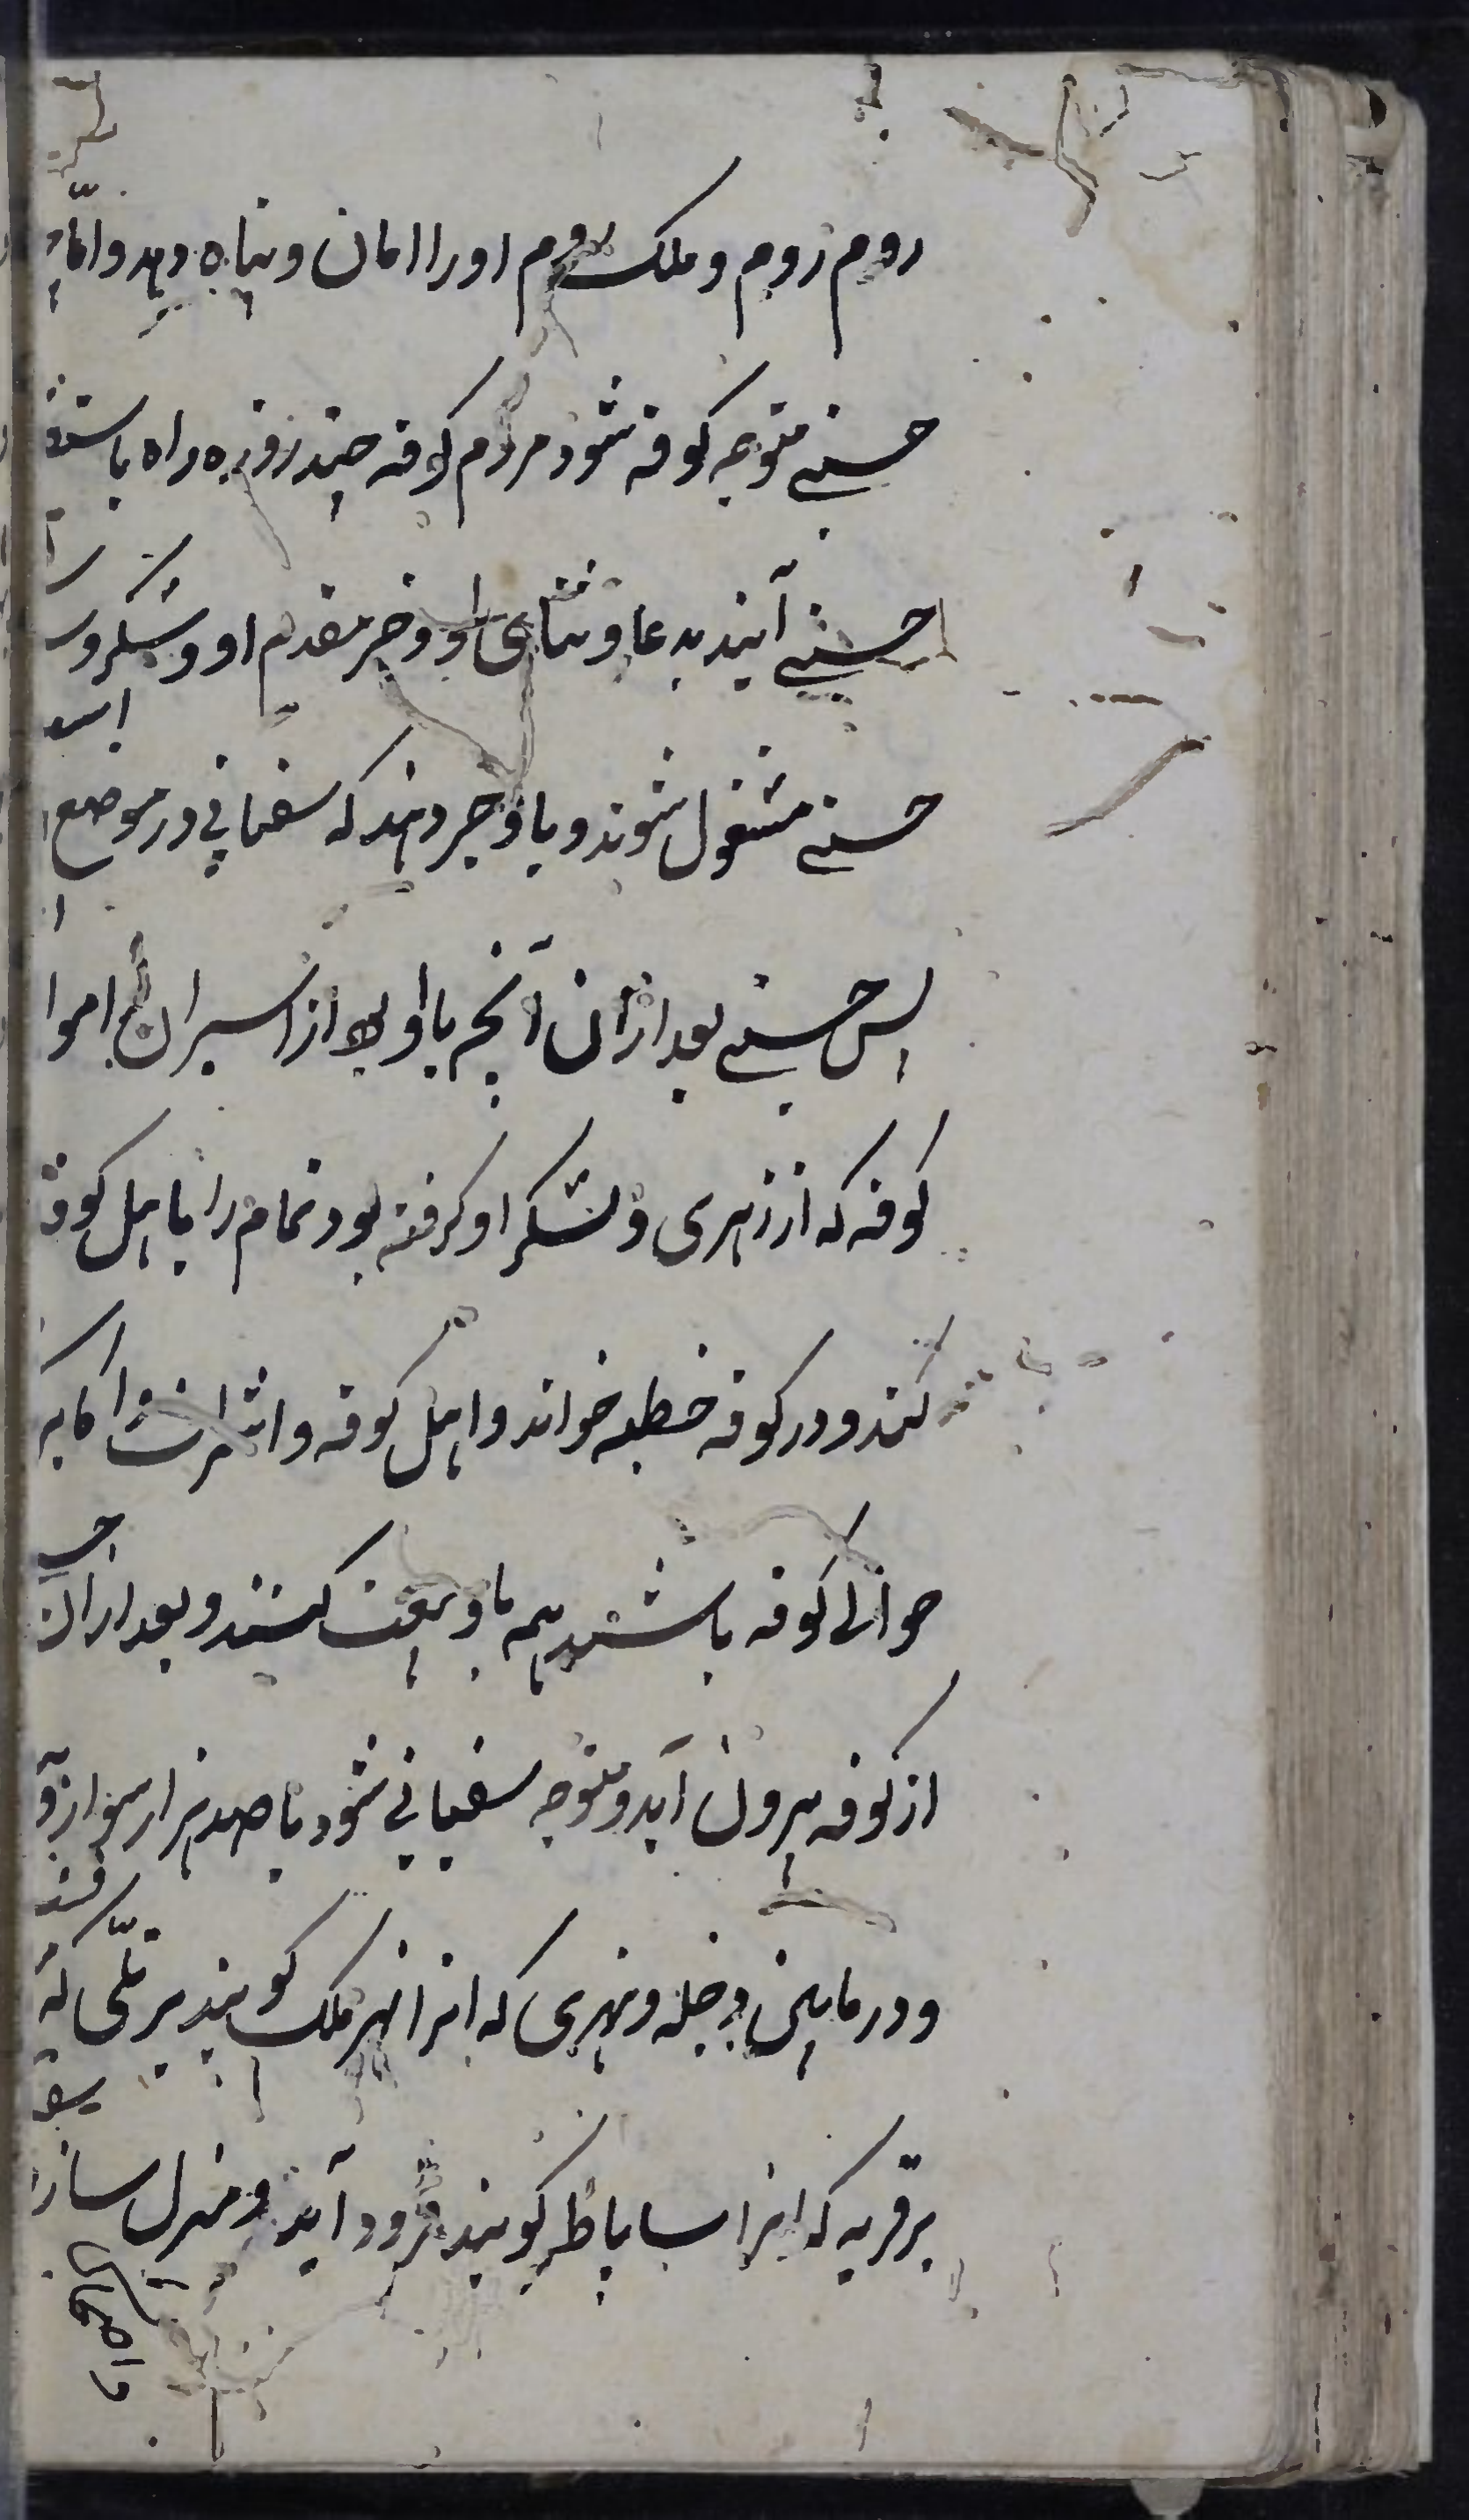 روم رود و ملک روم او را امان و پناه دهد و اما
حسنی متوجه کوفه شود مردم کوفه چند روزه راه باستقبا
حسنی آیند بدعا و ثنای او و خیر مقدم او و لشکر او
حسنی مشغول شوند و باو خبر دهند که سفیانی در موضع
پس حسنی بعد از آن آنچه با او بود از اسیران و اموا
کوفه که از زهری و لشکر او گرفته بود تمام را باهل کوفه
کند و در کوفه خطبه خواند و اهل کوفه و اشراف و اکابر
حوالی کوفه باشند هم باو بیعت کنند و بعد از آن
از کوفه بیرون آید و متوجه سفیانی شود با صد هزار سوار و
و در مابین دجله و نهری که انرا نهر ملک گویند بر تلی که
بر قریه که انرا ساباط گویند فرود آید و منزل سازد